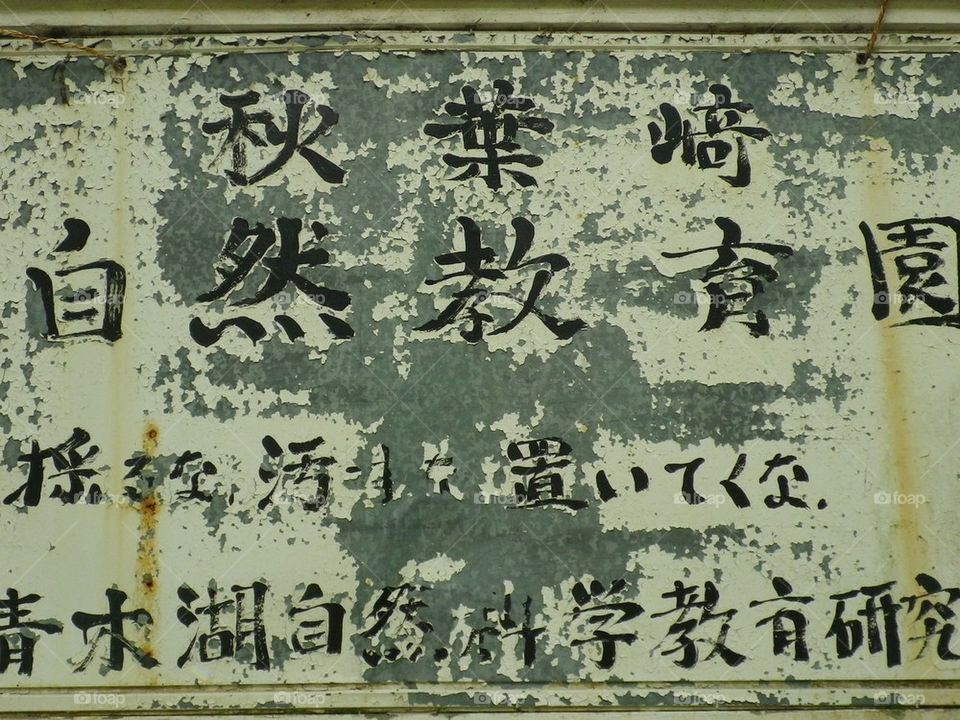 秋葉崎
自然教育園
採るな、汚 置いてくな、
青木湖自然科学教育研究